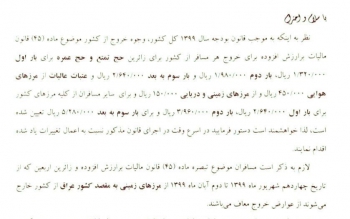 با سلام و احترام
نظر به اینکه به موجب قانون بودجه سال ۱۳۹۹ کل کشور، وجوه خروج از کشور موضوع ماده (۴۵) قانون
مالیات برارزش افزوده برای خروج هر مسافر از کشور برای زائرین حج تمتع و حج عمره برای بار اول
۱/۳۲۰/۰۰۰ ریال، بار دوم ۱/۹۸۰/۰۰۰ ریال و بار سوم به بعد ۲/۶۴۰/۰۰۰ ریال و عتبات عالیات از مرزهای
هوایی ۴۵۰/۰۰۰ ریال و از مرزهای زمینی و دریایی ۱۵۰/۰۰۰ ریال و برای سایر مسافران از کلیه مرزهای کشور
برای بار اول ۲/۶۴۰/۰۰۰ ریال، بار دوم ۳/۹۶۰/۰۰۰ ریال و برای بار سوم به بعد ۵/۲۸۰/۰۰۰ ریال تعیین شده
است، لذا خواهشمند است دستور فرمایید در اسرع وقت در اجرای قانون مذکور نسبت به اعمال تغییرات یاد شده
اقدام نمایند.
لازم به ذکر است مسافران موضوع تبصره ماده (۴۵) قانون مالیات برارزش افزوده و زائرین اربعین که از
تاریخ چهاردهم شهریور ماه ۱۳۹۹ تا دوم آبان ماه ۱۳۹۹ از مرزهای زمینی به مقصد کشور عراق از کشور خارج
می‌شوند از عوارض خروج معاف می‌باشند.